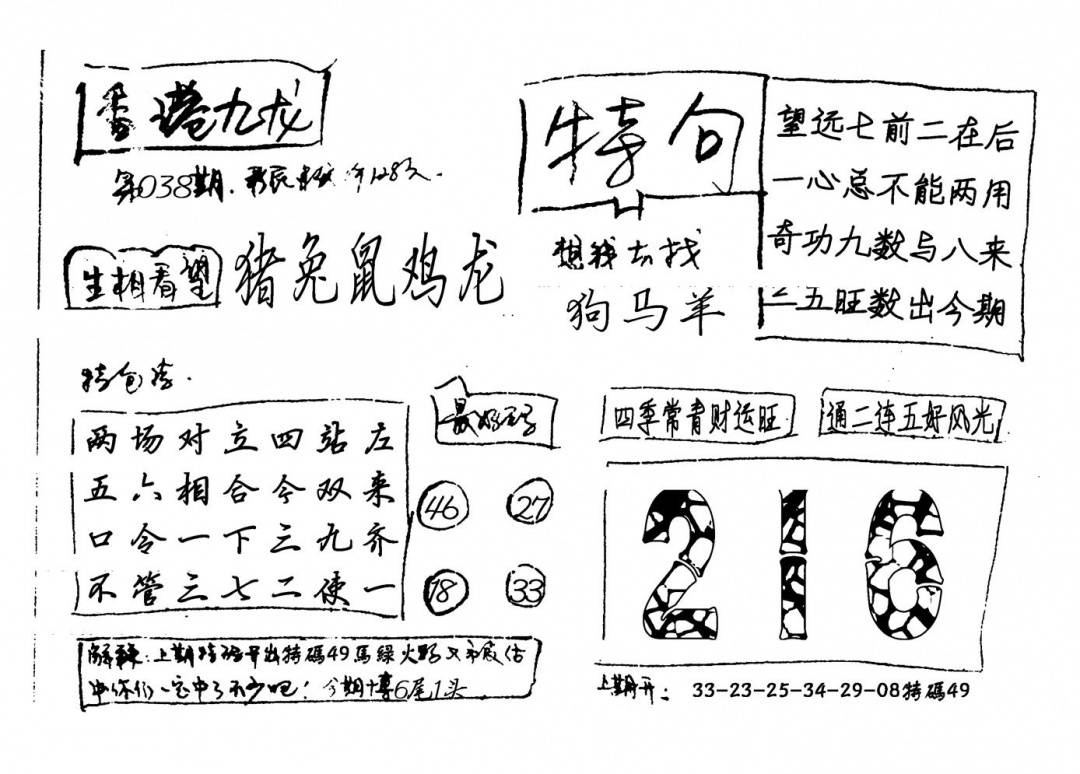 香港九龙
第038期.
生相看望
猪兔鼠鸡龙
特句
想我去找
狗马羊
望远七前二在后
一心总不能两用
奇功九数与八来
二五旺数出今期
特包
两场对立四站左
五六相合今双来
口令一下三九齐
不管三七二使一
最好
46 27
18 33
四季常青财运旺
通二连五好风光
216
上期 开出特碼49馬綠火
中你们一定中了不少吧! 今期 6尾1头
上期开: 33-23-25-34-29-08特碼49